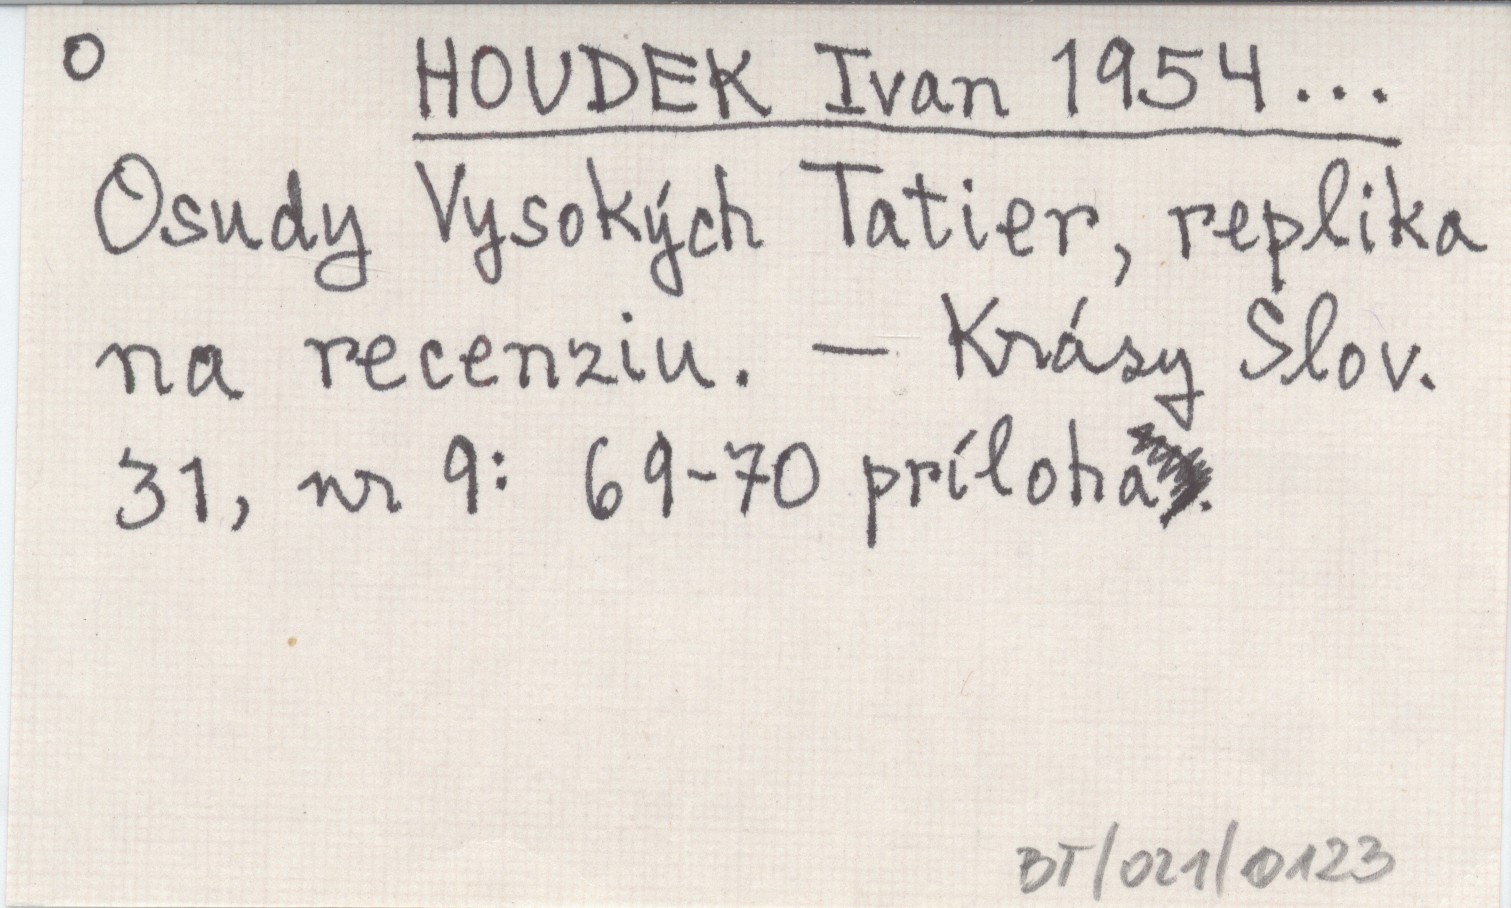 O HOUDEK Ivan 1954...
Osudy Vysokých Tatier, replika
na recenziu. — Krásy Slov.
31, nr 9: 69-70 príloha.
BT/021/0123